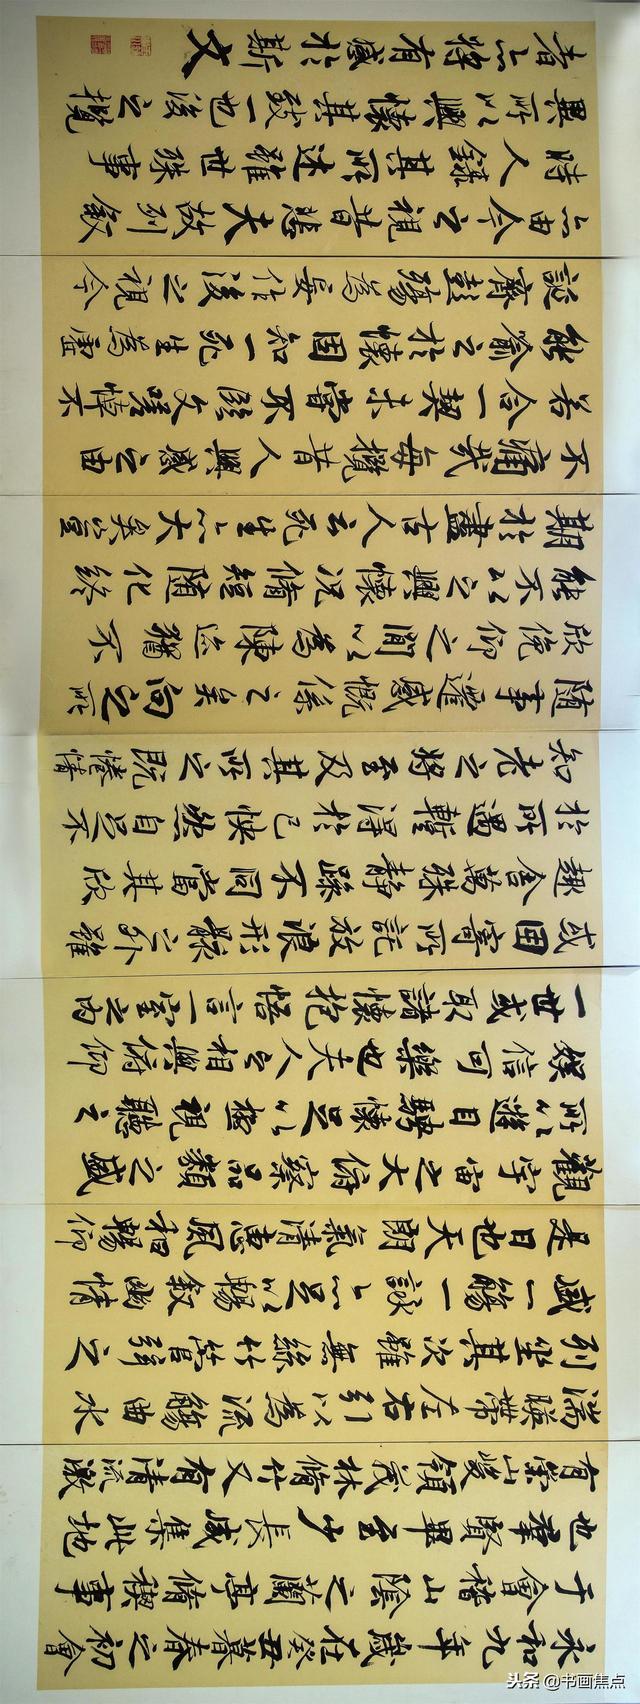 永和九年歲在癸丑暮春之初會
于會稽山陰之蘭亭脩稧事
也羣賢畢至少長咸集此地
有崇山峻領茂林脩竹又有清流激
湍暎帶左右引以為流觴曲水
列坐其次雖無絲竹管弦之
盛一觴一詠亦足以暢敘幽情
是日也天朗氣清惠風和暢仰
觀宇宙之大俯察品類之盛
所以遊目騁懷足以極視聽之
娛信可樂也夫人之相與俯仰
一世或取諸懷抱悟言一室之內
或因寄所託放浪形骸之外雖
趣舍萬殊靜躁不同當其欣
於所遇暫得於己快然自足不
知老之將至及其所之既惓情
隨事遷感慨係之矣向之所
欣俛仰之間以為陳迹猶不
能不以之興懷況脩短隨化終
期於盡古人云死生亦大矣豈
不痛哉每攬昔人興感之由
若合一契未嘗不臨文嗟悼不
能喻之於懷固知一死生為虛
誕齊彭殤為妄作後之視今
亦由今之視昔悲夫故列敘
時人錄其所述雖世殊事
異所以興懷其致一也後之攬
者亦將有感於斯文
头条 @书画焦点